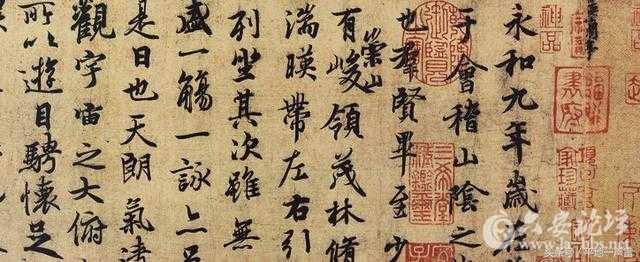 神品
永和九年歲
于會稽山陰之
也羣賢畢至少
有崇山峻領茂林脩
湍暎帶左右引
列坐其次雖無
盛一觴一詠亦足
是日也天朗氣清
觀宇宙之大俯
所以遊目騁懷足
六安论坛
www.la-bbs.net